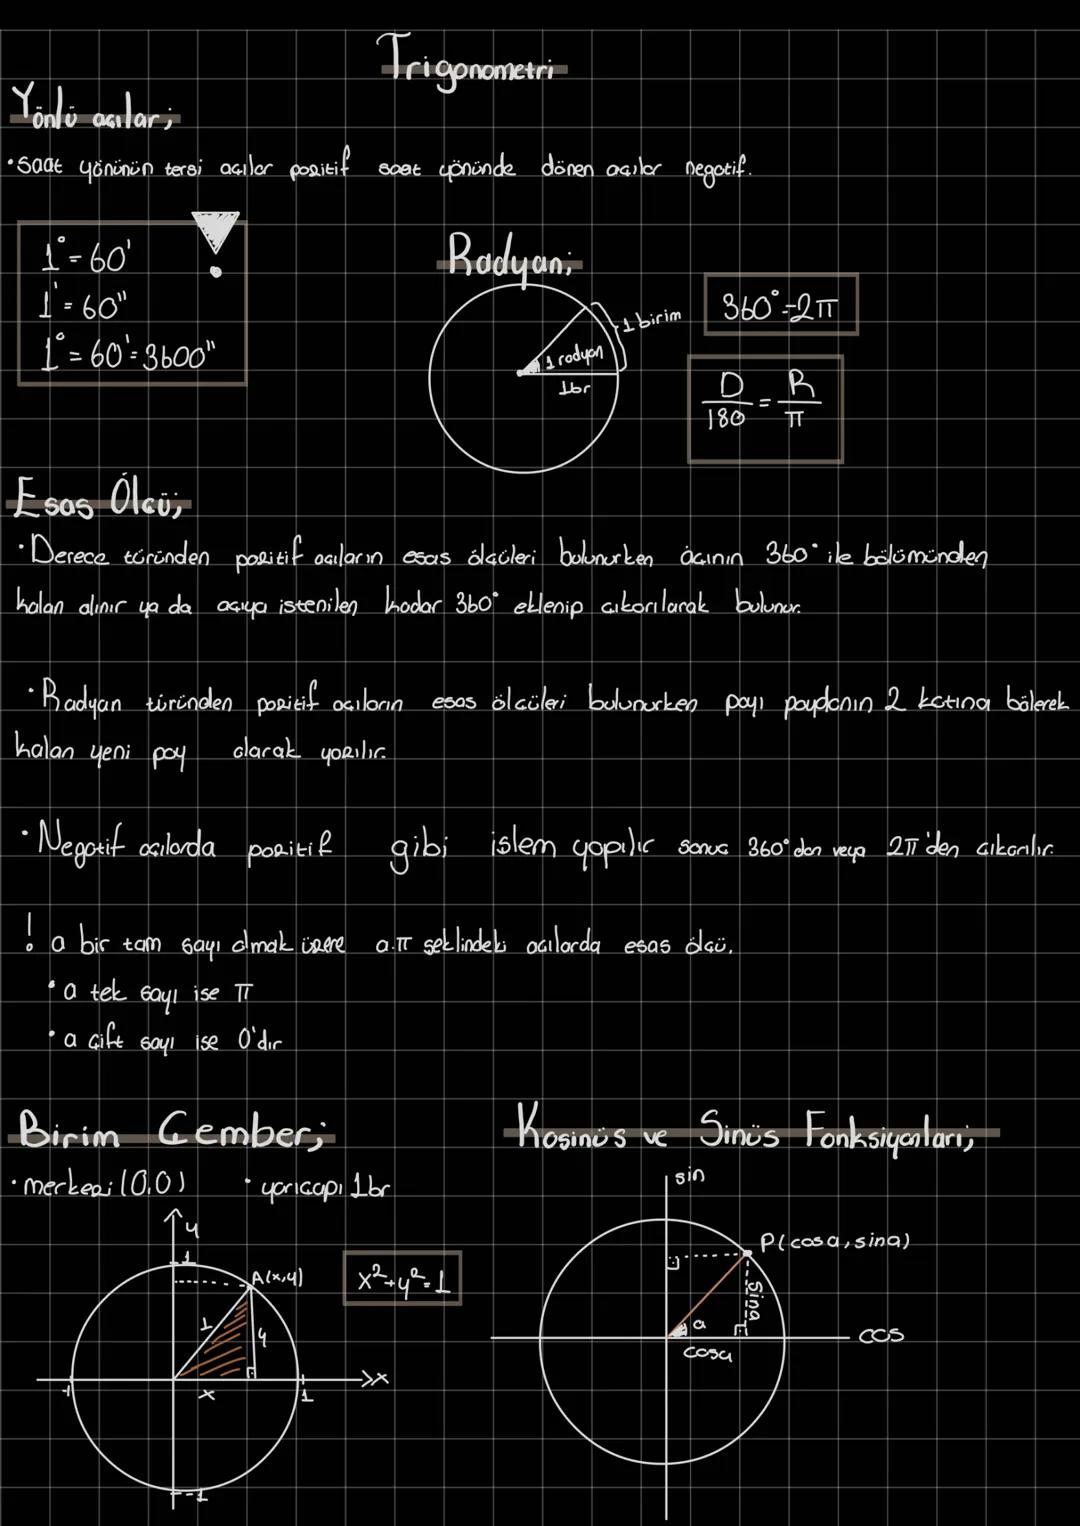 Trigonometri
Yönlü açılar;
• saat yönünün tersi açılar pozitif saat yönünde dönen açılar negatif.
1° = 60'
1' = 60"
1° = 60' = 3600"
Radyan;
1 birim
1 radyan
1br
360° = 2π
D/180 = R/π
Esas Ölçü;
• Derece türünden pozitif açıların esas ölçüleri bulunurken açının 360° ile bölümünden
kalan alınır ya da açıya istenilen kadar 360° eklenip çıkarılarak bulunur.
• Radyan türünden pozitif açıların esas ölçüleri bulunurken payı paydanın 2 katına bölerek
kalan yeni pay olarak yazılır.
• Negatif açılarda pozitif gibi işlem yapılır sonuç 360° dan veya 2π'den çıkarılır.
! a bir tam sayı olmak üzere a.π şeklindeki açılarda esas ölçü,
• a tek sayı ise π
• a çift sayı ise 0'dır
Birim Çember;
• merkezi (0,0) • yarıçapı 1br
y
1
A(x,y)
x²+y²=1
1
y
-1
x
1
x
-1
Kosinüs ve Sinüs Fonksiyonları;
sin
P(cosa, sina)
sina
a
cosa
cos